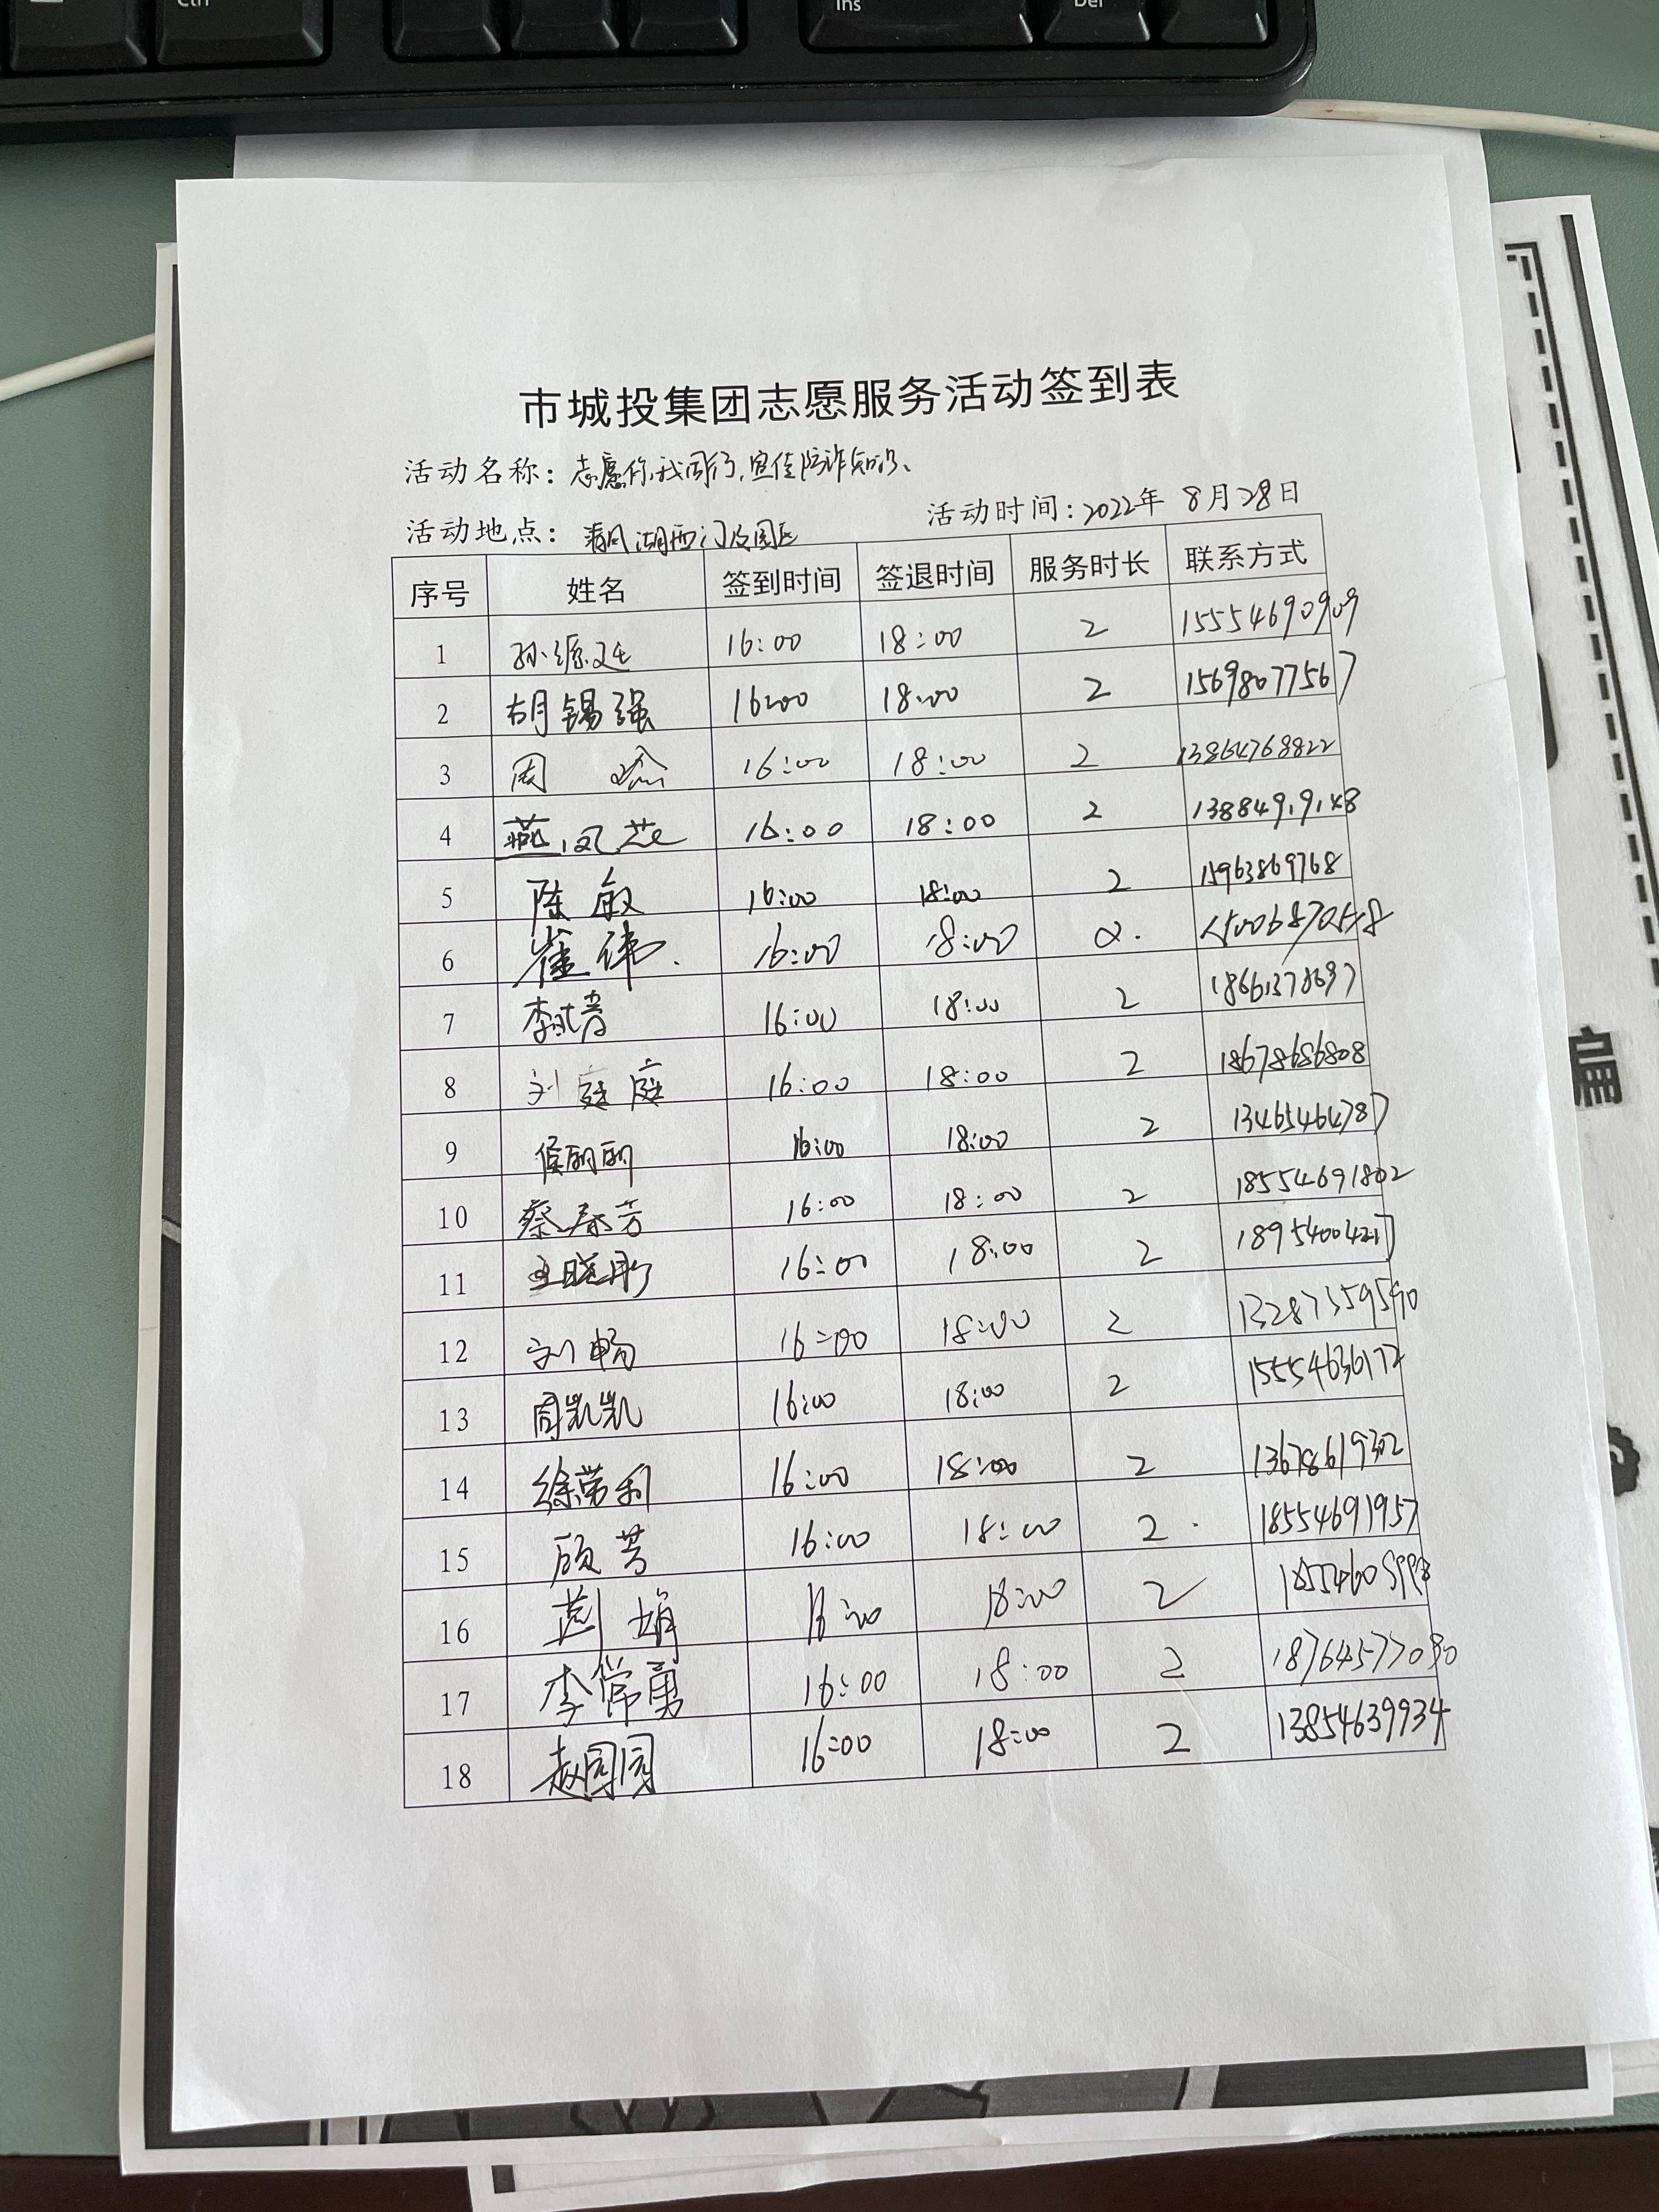 Ctrl
Ins
Del
市城投集团志愿服务活动签到表
活动名称：志愿你我同行，宣传防诈知识、
活动时间：2022年 8月28日
活动地点：清风湖西门及园区
序号 姓名 签到时间 签退时间 服务时长 联系方式
1 孙源廷 16:00 18:00 2 15554690909
2 胡锡强 16:00 18:00 2 15698077567
3 周 16:00 18:00 2 13864768822
4 燕凤芝 16:00 18:00 2
5 陈敏 16:00 18:00 2 15963869768
6 崔伟 16:00 18:00 2
7 16:00 18:00 2 18661378697
8 刘庭庭 16:00 18:00 2 18678686808
9 侯丽丽 16:00 18:00 2 13465464787
10 蔡春芳 16:00 18:00 2 18554691802
11 王晓彤 16:00 18:00 2
12 刘畅 16:00 18:00 2 13287359590
13 周凯凯 16:00 18:00 2 15554636172
14 徐荣利 16:00 18:00 2 13678619302
15 顾芳 16:00 18:00 2 18554691957
16 娟 18:00 2
17 李常勇 16:00 18:00 2 18764577090
18 赵园园 16:00 18:00 2 13854639934